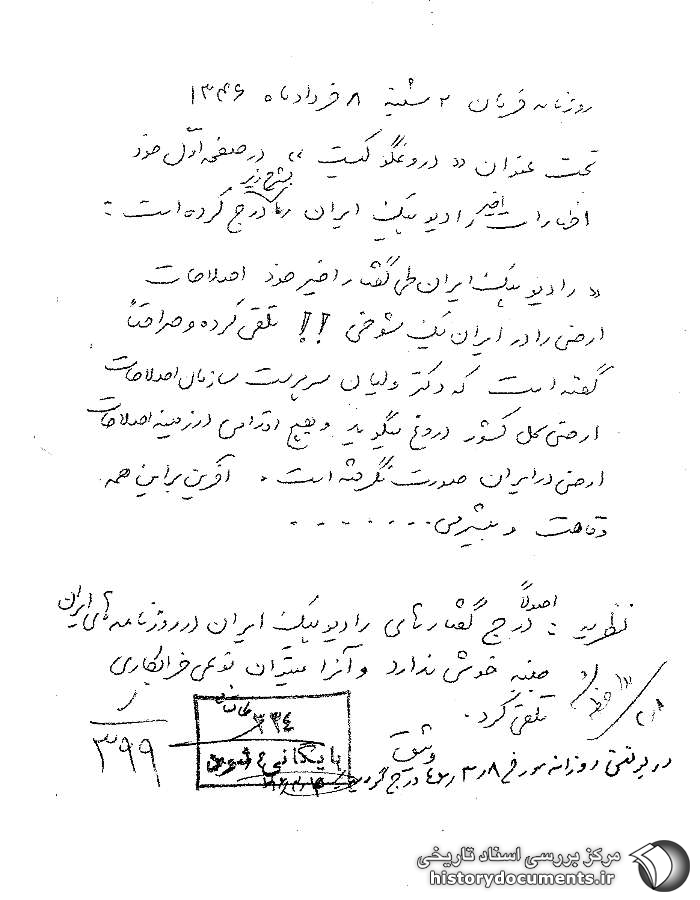 روزنامه فرمان ۲ شنبه ۸ خرداد ماه ۱۳۴۶
تحت عنوان «دروغگو کیست» در صفحه اول خود
بشرح زیر
اظهارات اخیر رادیو پیک ایران را درج کرده است :
« رادیو پیک ایران طی گفتار اخیر خود اصلاحات
ارضی را در ایران یک شوخی !! تلقی کرده و صراحتاً
گفته است که دکتر ولیان سرپرست سازمان اصلاحات
ارضی کل کشور دروغ میگوید و هیچ اقدامی در زمینه اصلاحات
ارضی در ایران صورت نگرفته است . آفرین بر این همه
وقاحت و بیشرمی . . . . . . . .
نظریه : اصولاً درج گفتارهای رادیو پیک ایران در روزنامه‌های ایران
جنبه خوشی ندارد و آنرا میتوان نوعی خرابکاری
تلقی کرد .
۳۳۴
بایگانی شود
۳۹۹
وثیق
در بولتن روزانه مورخ ۴۶/۳/۸ درج گردید
مرکز بررسی اسناد تاریخی
historydocuments.ir